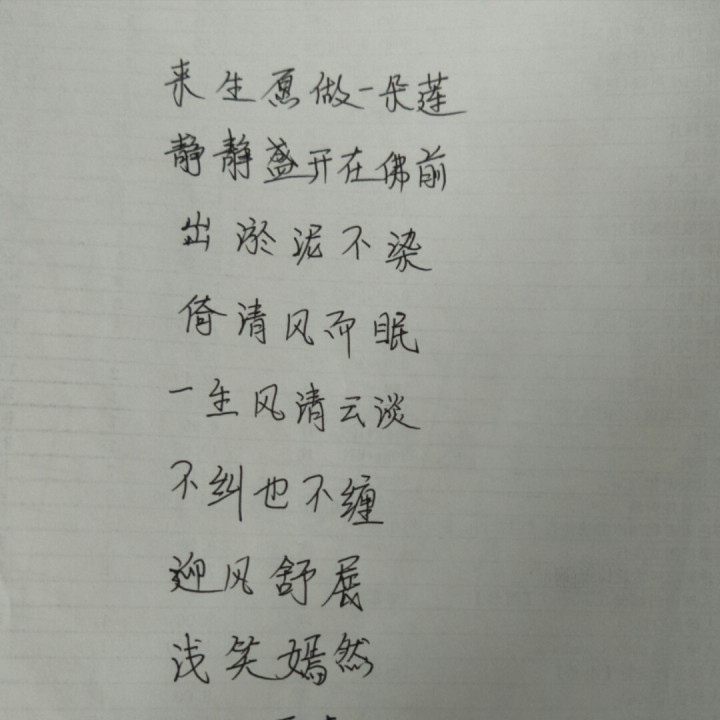 来生愿做一朵莲
静静盛开在佛前
出淤泥不染
倚清风而眠
一生风清云谈
不纠也不缠
迎风舒展
浅笑嫣然